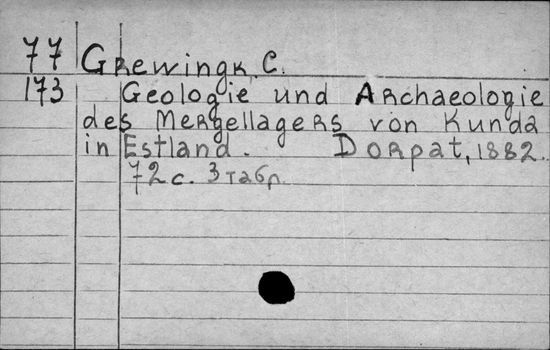 77 Grewingk C.
173 Geologie und Archaeologie
des Mergellagers von Kunda
in Estland. Dorpat, 1882.
72 с. 3 табл.